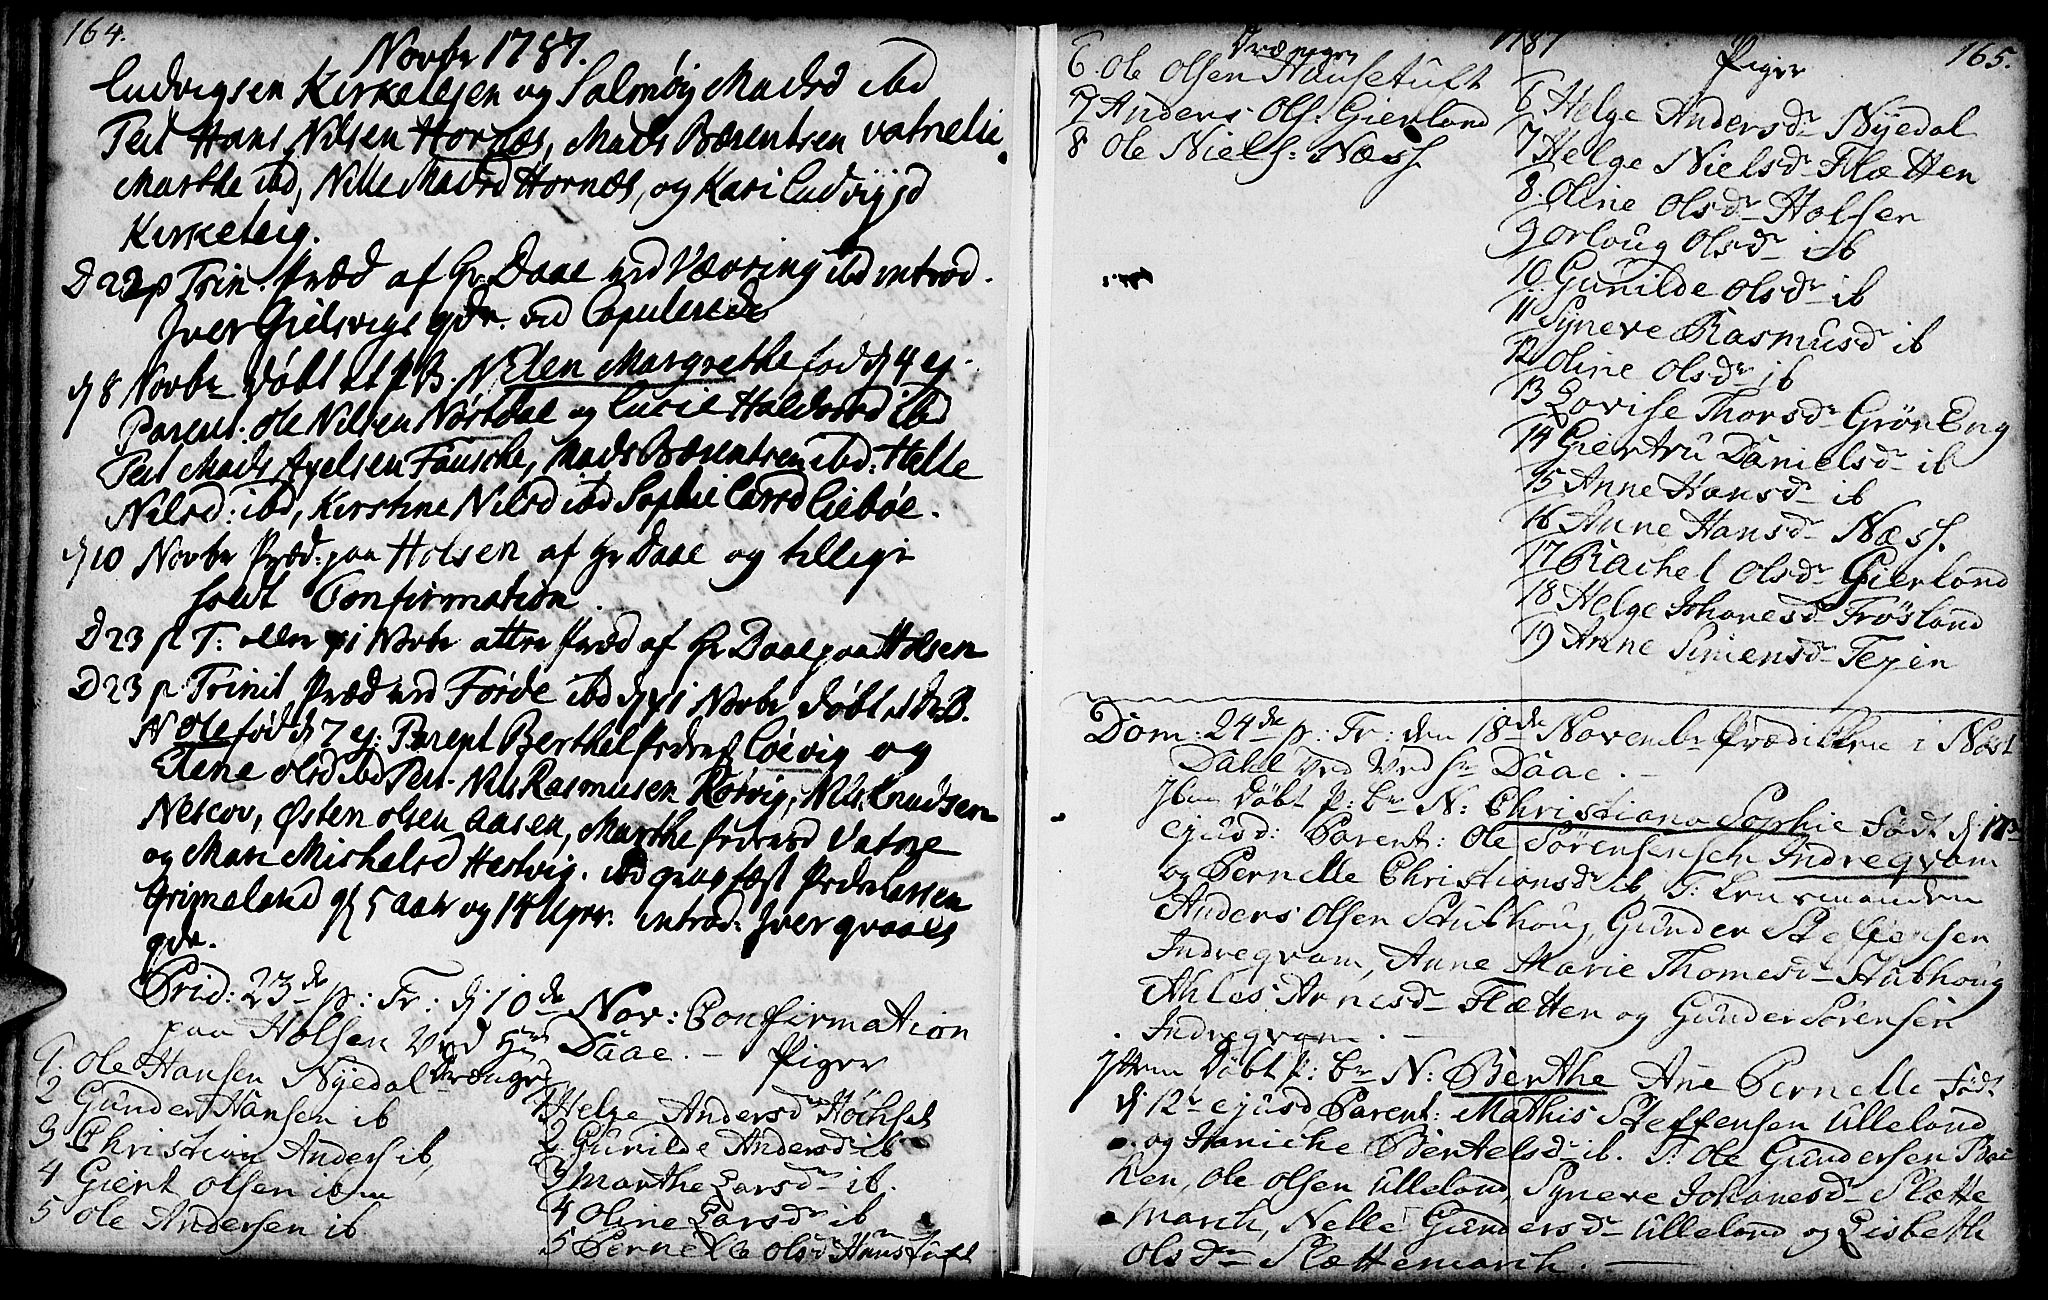 164.
Novbr 1787.
Ludvigsen Kirketeien og Salmøy Madsd ibd
Test Hans Nilsen Hornæs, Mads Bærentsen vatnelie
Marthe ibd, Nille Madsd Hornæs, og Kari Ludvigsd
Kirketeig.
D 22 p Trin. Præd af Hr Daae ved Vævring ibd introd.
Iver Gielsvigs qde. ibd Copulerede
dj 8 Novbr døbt et B. N Elen Margrethe fød dj 4 ej.
Parent. Ole Nilsen Nøstdal og Lucie Haldorsd ibd
Test Mads Axelsen Fausche, Mads Bærentsen ibd: Helle
Nilsd: ibd, Kirstine Nilsd ibd Sophie Larsd Liebøe.
dj 10 Novbr Præd: paa Holsen af Hr Daae og tillige
holdt Confirmation.
D 23 p T: eller xi Novbr atter Præd af Hr Daae paa Holsen
D 23 p Trinit Præd ved Førde ibd dj xi Novbr døbt B.
N Ole fød dj 7 ej: Parent Berthel Løevig og
Elene Olsd ibd Test. Nils Rasmusen Rørvig, Nils Knudsen
Nescov, Østen Olsen Aasen, Marthe Vatne
og Mari Michelsd Hestvig. ibd Peder Larsen
Grimeland gl 5 aar og 14 Uger. introd: Iver
qde.
Prid: 23de p: Tr: dj 10de Nov: Confirmation
paa Holsen Ved Hr Daae. – Piger
1. Ole Hansen Nyedal Drenge
2 Gunder Hansen ib
3 Christian Anders ib,
4 Giert Olsen ibm
5 Ole Andersen ib
1 Helge Andersdr Høchset
2 Gunilde Andersdr ib
3 Marthe Larsdr ib.
4 Oline Larsdr ib
5 Pernelle Olsdr Hunsetuft
1787
165.
Drænger
6 Ole Olsen Hunsetuft
7 Anders Ols: Gierland
8 Ole Niels: Næss.
Piger
6 Helge Andersdr Nyedal
7 Helge Nielsdr Flætten
8. Oline Olsdr Holsen
9 Orloug Olsdr ib
10 Gunilde Olsdr ib
11 Syneve Rasmusdr ib
12 Oline Olsdr ib
13 Lovise Thorsdr GrönEng
14 Giertru Danielsdr ib
15 Anne Hansdr ib
16 Anne Hansdr Næss.
17 Rachel Olsdr Gierland
18 Helge Johanesdr Frösland
19 Anne Simensdr Tefien
Dom: 24de p: Tr: den 18de Novembr Prædiken i Nöst
Dahl Ved Hr Daae. –
Ibm Döbt P: Br N: Christiana Sophie Födt dj
ejusd: Parent: Ole Sörensen Indreqvam
og Pernelle Christiansdr ib T: Lensmanden
Anders Olsen Stubhoug, Gunder Steffensen
Indreqvam, Anne Marie Thomesdr Stubhoug
Ahles Arnesdr Flætten og Gunder Sörensen
Indreqvam. –
Item Döbt P: Br N: Berthe Ane Pernelle Födt
dj 12te ejusd Parent: Mathis Steffensen Ulleland
og Haniche Bertelsdr ib. T: Ole Gundersen Bac
ken, Ole Olsen Ulleland, Syneve Johanesdr Slætte
march, Nelle Gundersdr Ulleland og Lisbeth
Olsdr Slættemarch. –